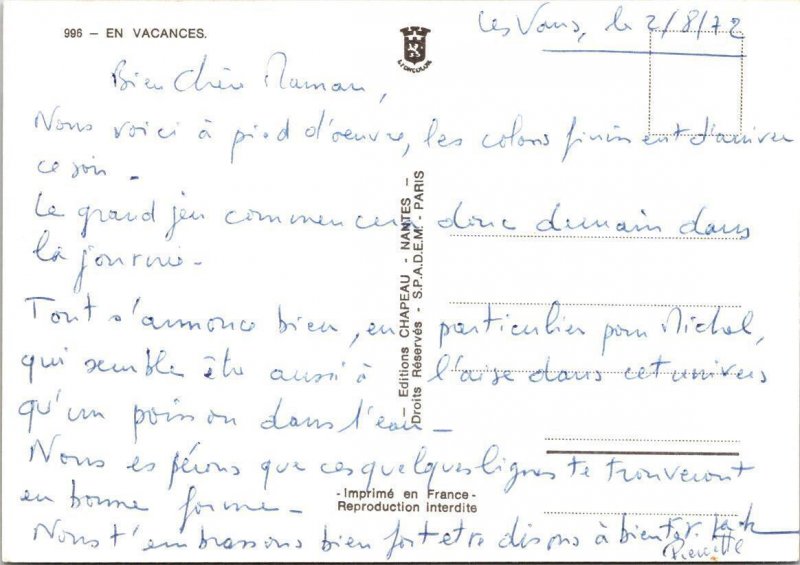 996 — EN VACANCES.
LYONCOLOR
Les Vans, le 2/8/72
Bien Chère Maman,
Nous voici à pied d'œuvre, les colons finissent d'arriver
ce soir.
Le grand jeu commencera donc demain dans
la journée -
Tout s'annonce bien, en particulier pour Michel,
qui semble être aussi à l'aise dans cet univers
qu'un poisson dans l'eau -
Nous espérons que ces quelques lignes te trouveront
en bonne forme -
Nous t'embrassons bien fort et te disons à bientôt.
Pierrette
— Editions CHAPEAU - NANTES —
Droits Réservés - S.P.A.D.E.M. - PARIS
-Imprimé en France-
Reproduction interdite